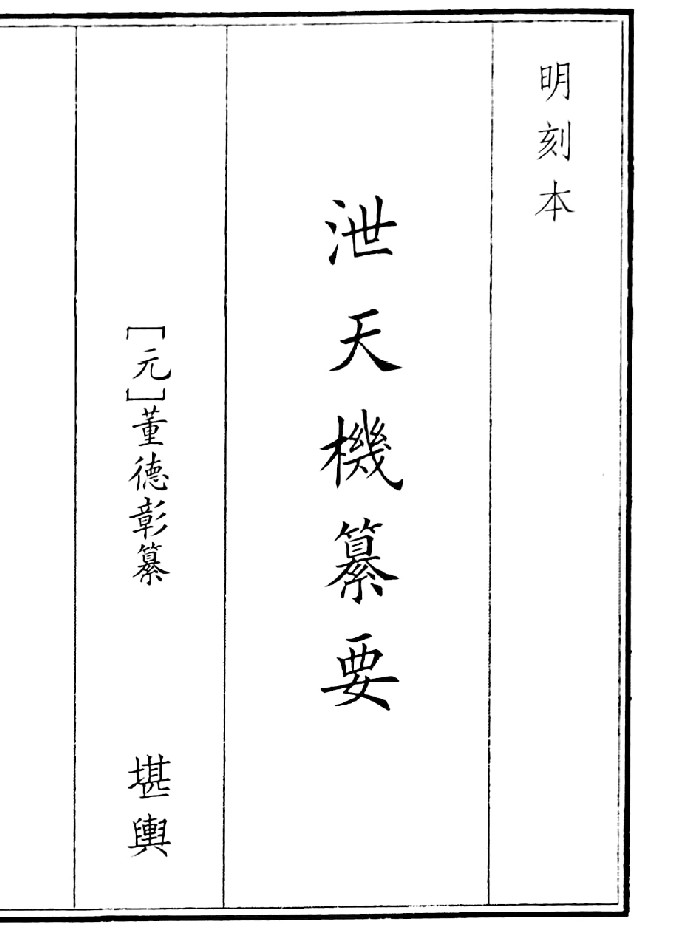 明刻本
泄天機纂要
［元］董德彰纂
堪輿